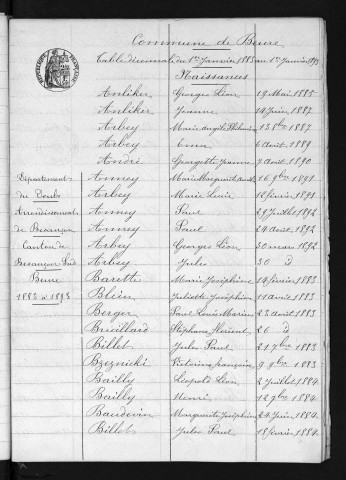 Commune de Beure
Table décennale du 1er Janvier 1883 au 1er Janvier 1893
Naissances
RÉPUBLIQUE FRANÇAISE
Département
du Doubs
Arrondissement
de Besançon
Canton de
Besançon Sud
Beure
1883 à 1893
Anliker Georges Léon 19 Mai 1885
Anliker Jeanne 14 Juin 1887
Arbey Marie 13 8bre 1887
Arbey 6 Août 1889
André Georgette Jeanne 7 Août 1890
Annoy Marie Marguerite 16 9bre 1891
Arbey Marie Louise 12 février 1891
Annoy Paul 29 Juillet 1892
Annoy Paul 24 Août 1892
Arbey Georges Léon 30 mars 1892
Arbey Jules 30 d
Barette Marie Joséphine 14 février 1883
Blein Juliette Joséphine 11 avril 1883
Berger Paul Louis Marius 23 Août 1883
Breillard Stéphane Florient 26 d
Billet Jules Paul 21 7bre 1883
Bzeznicki Victorine françoise 9 9bre 1883
Bailly Léopold Léon 2 Juillet 1884
Bailly Henri 12 9bre 1884
Baudevin Marguerite Joséphine 24 Juin 1884
Billet Jules Paul 18 février 1884